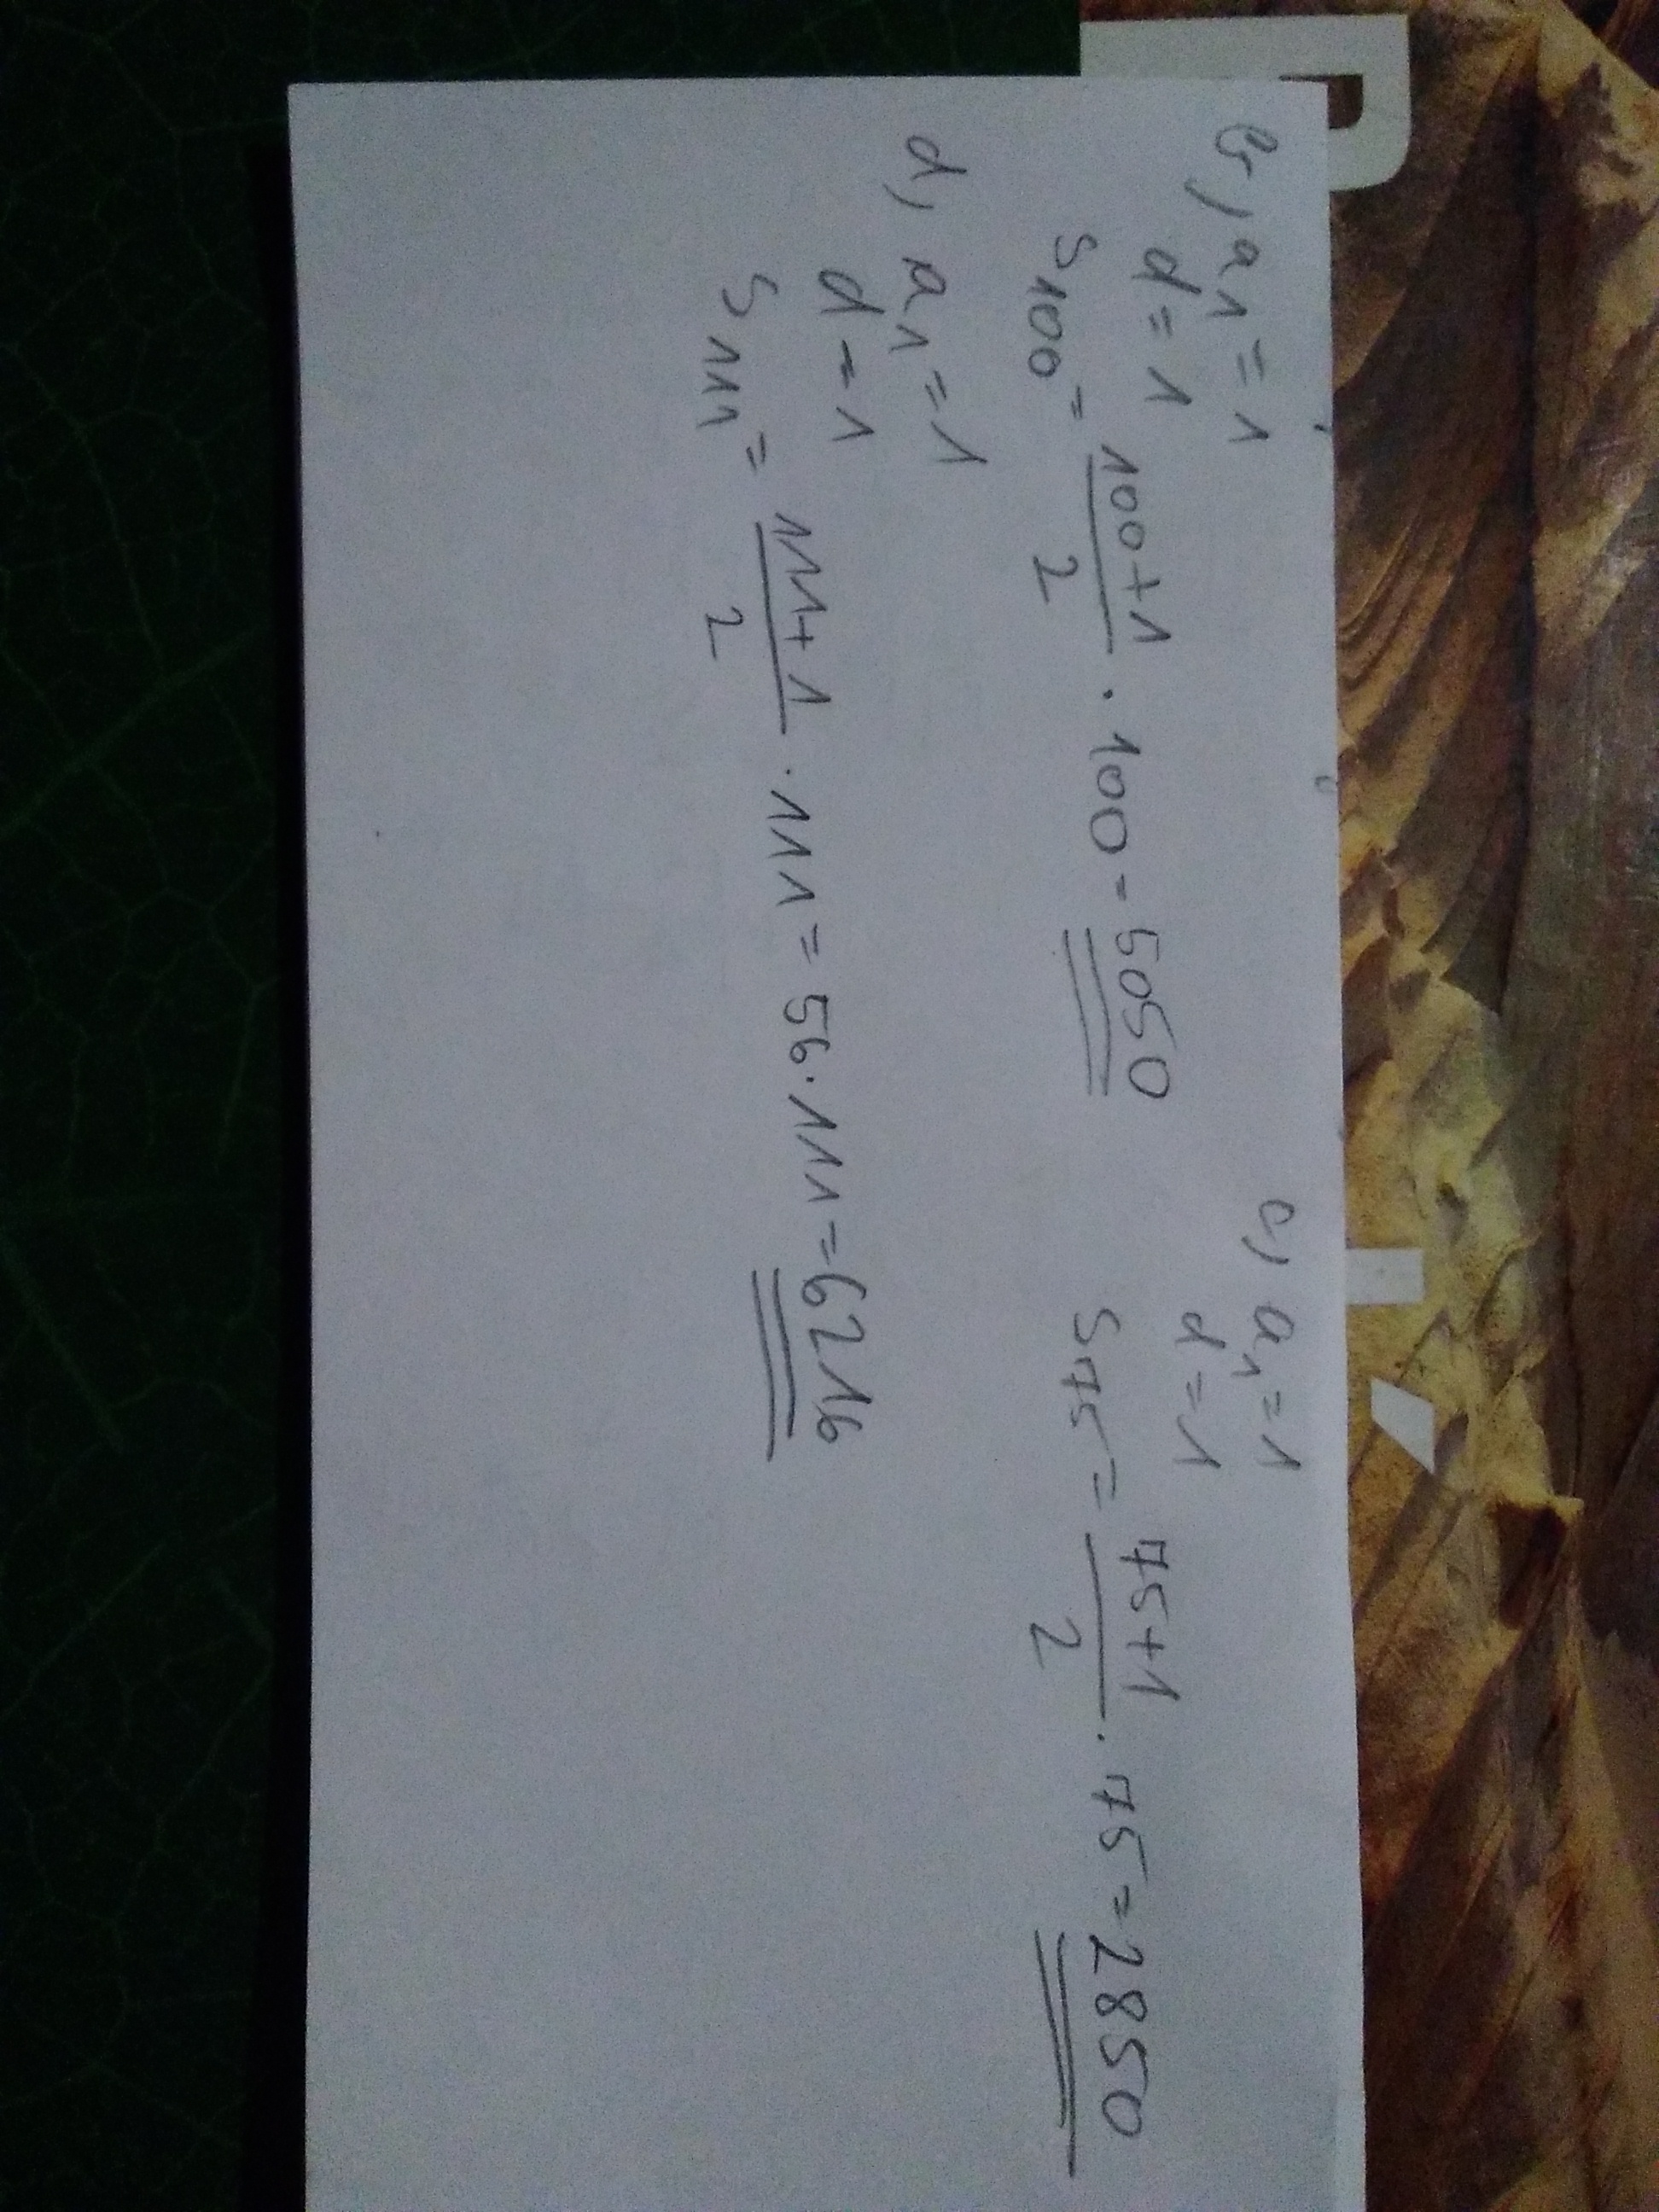 b, a₁ = 1
d = 1
S₁₀₀ = (100+1)/2 · 100 = 5050
c, a₁ = 1
d = 1
S₇₅ = (75+1)/2 · 75 = 2850
d, a₁ = 1
d = 1
S₁₁₁ = (111+1)/2 · 111 = 56 · 111 = 6216